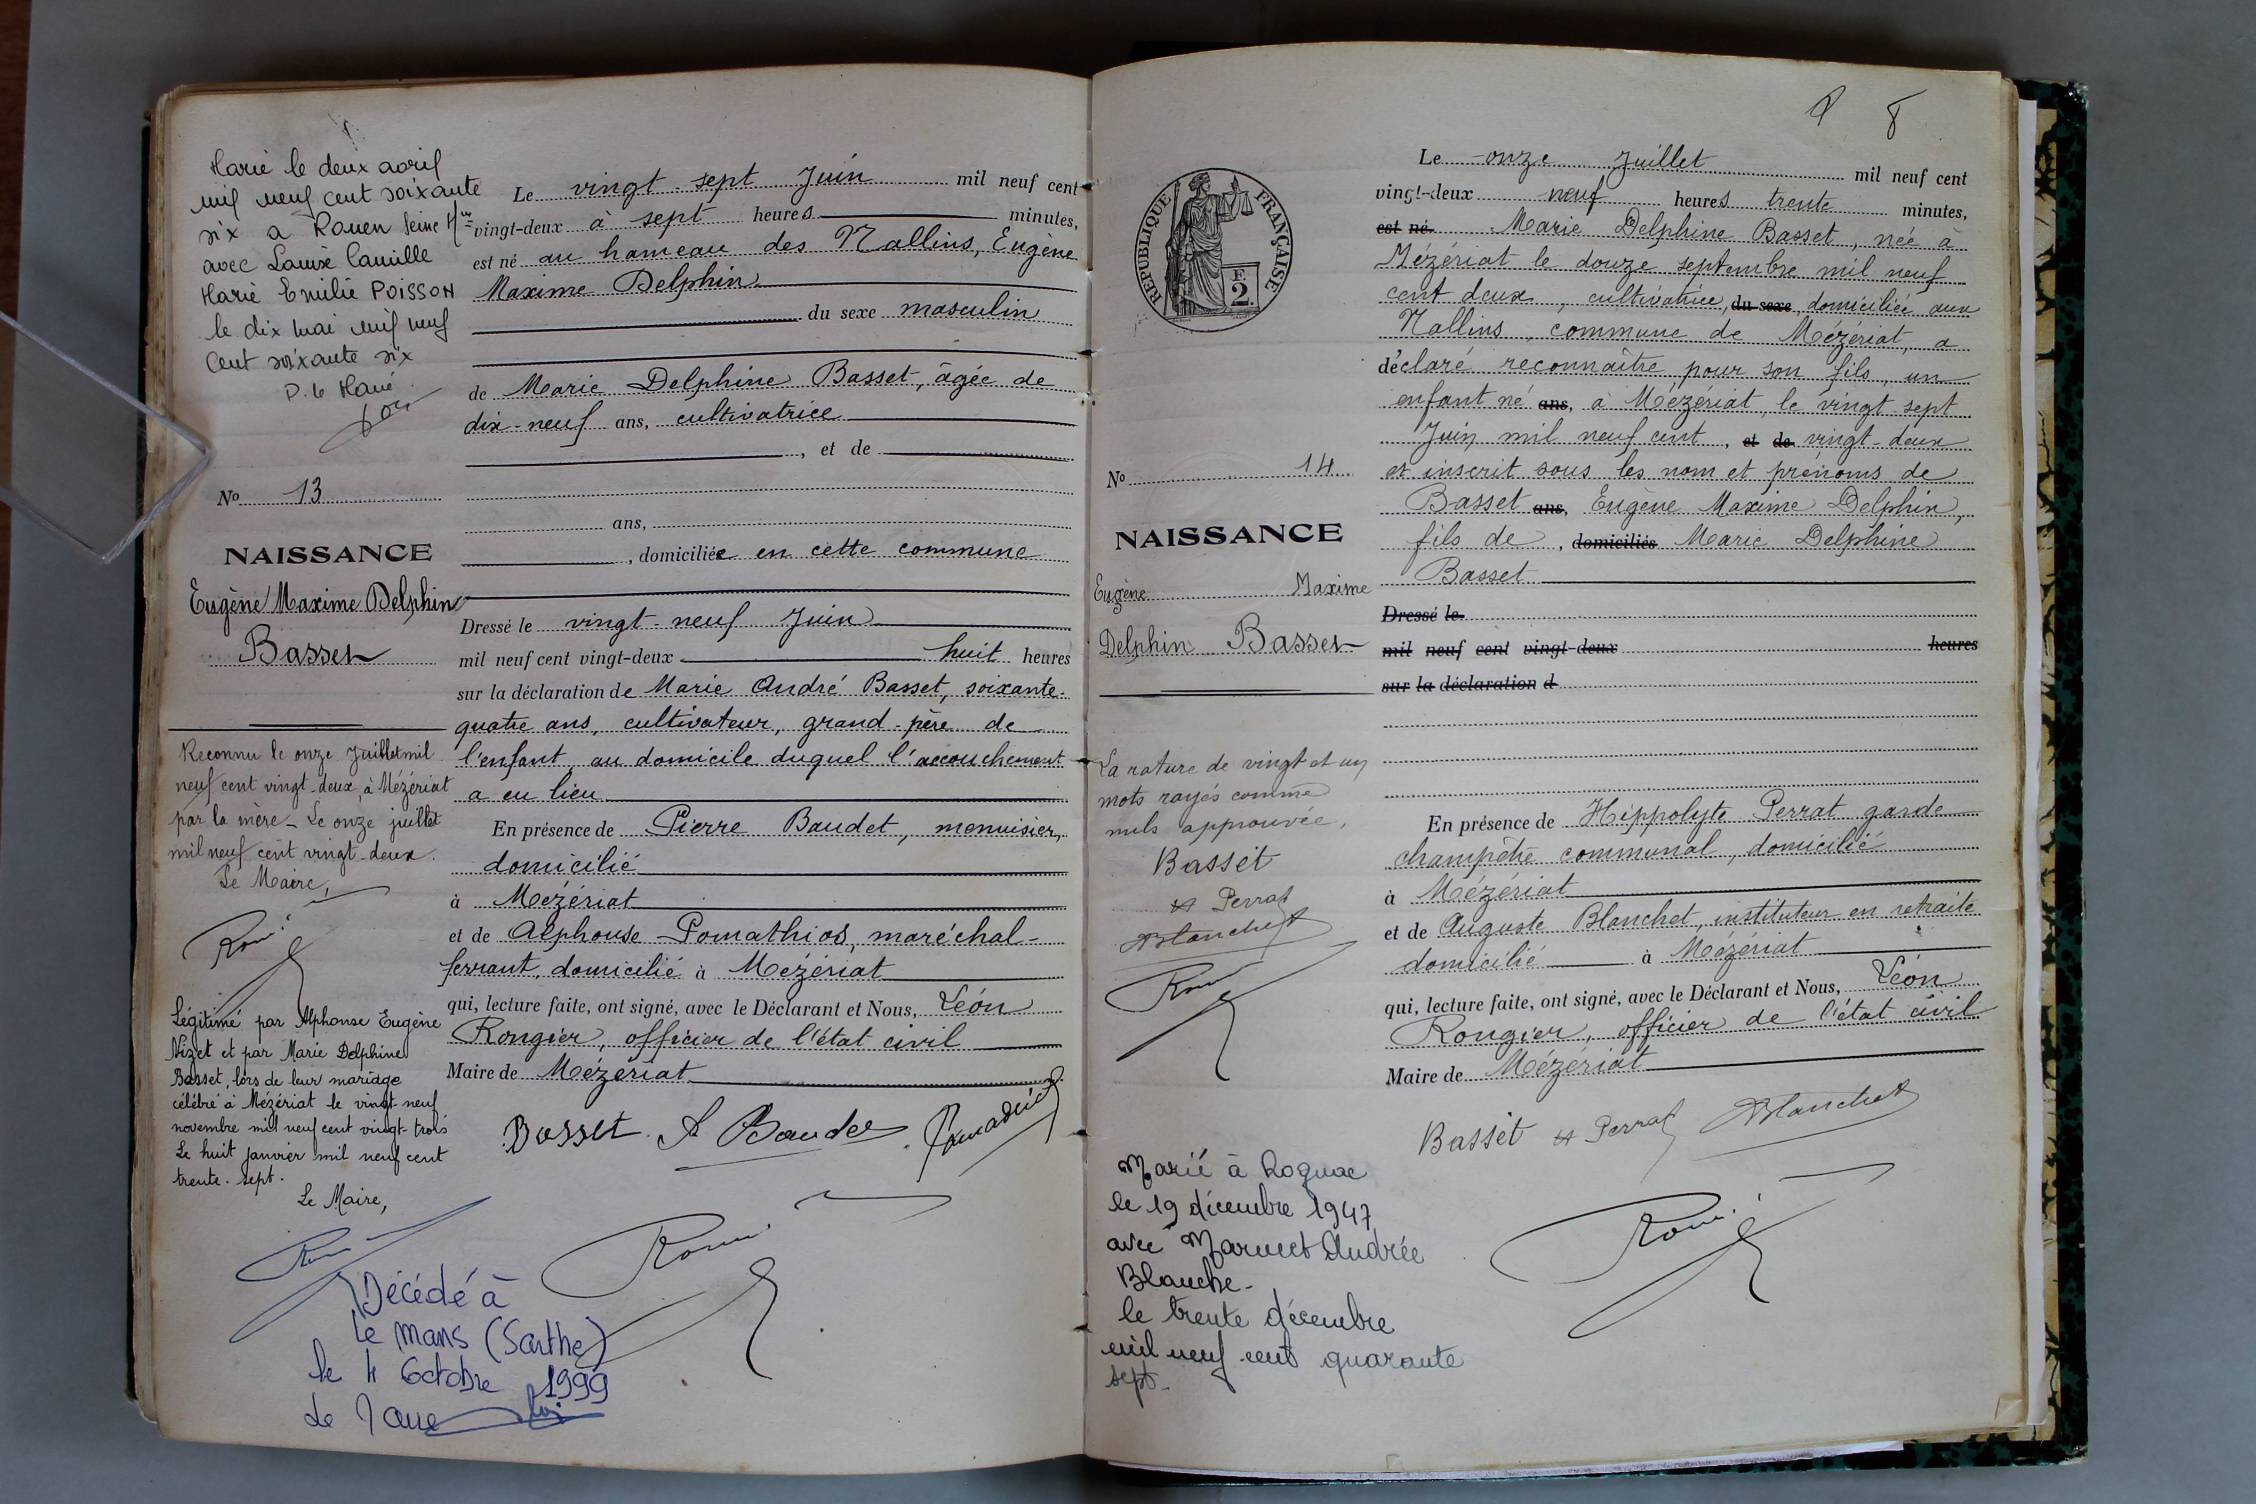 Marié le deux avril
mil neuf cent soixante
six a Rouen Seine Mme
avec Louise Camille
Marie Emilie POISSON
le dix mai mil neuf
Cent soixante six
P. le Maire
No 13
NAISSANCE
Eugène Maxime Delphin
Basset
Reconnu le onze Juillet mil
neuf cent vingt-deux, à Mézériat
par la mère - Le onze juillet
mil neuf cent vingt-deux.
Le Maire,
Légitimé par Alphonse Eugène
Nizet et par Marie Delphine
Basset, lors de leur mariage
célébré à Mézériat le vingt-neuf
novembre mil neuf cent vingt-trois
Le huit janvier mil neuf cent
trente-sept.
Le Maire,
Décédé à
Le Mans (Sarthe)
le 4 Octobre 1999
Le Maire
Le vingt-sept Juin mil neuf cent
vingt-deux à sept heures minutes,
est né au hameau des Nallins, Eugène
Maxime Delphin
du sexe masculin
de Marie Delphine Basset, âgée de
dix-neuf ans, cultivatrice
, et de
ans,
, domiciliée en cette commune
Dressé le vingt-neuf Juin
mil neuf cent vingt-deux huit heures
sur la déclaration de Marie André Basset, soixante-
quatre ans, cultivateur, grand-père de
l'enfant, au domicile duquel l'accouchement
a eu lieu
En présence de Pierre Baudet, menuisier,
domicilié
à Mézériat
et de Alphonse Pomathios, maréchal-
ferrant, domicilié à Mézériat
qui, lecture faite, ont signé, avec le Déclarant et Nous, Léon
Rongier, officier de l'état civil
Maire de Mézériat
Basset A Baudet
8
RÉPUBLIQUE FRANÇAISE
F.
2.
No 14
NAISSANCE
Eugène Maxime
Delphin Basset
La rature de vingt et un
mots rayés comme
nuls approuvée,
Basset
H Perrat
ABlanchet
Marié à Rognac
le 19 décembre 1947
avec Andrée
Blanche-
le trente décembre
mil neuf cent quarante
sept-
Le onze Juillet mil neuf cent
vingt-deux neuf heures trente minutes,
est né. Marie Delphine Basset, née à
Mézériat le douze septembre mil neuf
cent deux, cultivatrice, du sexe, domiciliée aux
Nallins, commune de Mézériat, a
déclaré reconnaître pour son fils, un
enfant né ans, à Mézériat, le vingt-sept
Juin mil neuf cent, et de vingt-deux
et inscrit sous les nom et prénoms de
Basset ans, Eugène Maxime Delphin,
fils de, domiciliés Marie Delphine
Basset
Dressé le
mil neuf cent vingt-deux heures
sur la déclaration d
En présence de Hippolyte Perrat garde
champêtre communal, domicilié
à Mézériat
et de Auguste Blanchet, instituteur en retraite
domicilié à Mézériat
qui, lecture faite, ont signé, avec le Déclarant et Nous, Léon
Rongier, officier de l'état civil
Maire de Mézériat
Basset H Perrat ABlanchet